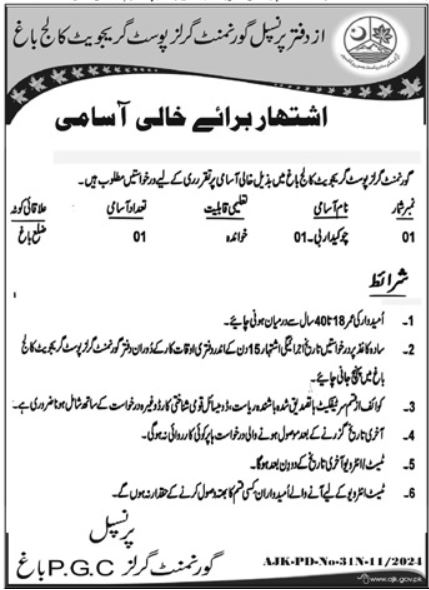 از دفتر پرنسپل گورنمنٹ گرلز پوسٹ گریجویٹ کالج باغ
اشتہار برائے خالی آسامی
گورنمنٹ گرلز پوسٹ گریجویٹ کالج باغ میں بذیل خالی آسامی پر تقرری کے لیے درخواستیں مطلوب ہیں۔
نمبر شمار نام آسامی تعلیمی قابلیت تعداد آسامی علاقائی کوٹہ
01 چوکیدار بی۔01 خواندہ 01 ضلع باغ
شرائط
1۔ اُمیدوار کی عمر 18 تا 40 سال کے درمیان ہونی چاہیے۔
2۔ سادہ کاغذ پر درخواستیں تاریخ اجرائیگی اشتہار 15 دن کے اندر دفتری اوقات کار کے دُوران دفتر گورنمنٹ گرلز پوسٹ گریجویٹ کالج
باغ میں پہنچ جانی چاہیے۔
3۔ کوائف از قسم سرٹیفکیٹ ہا تصدیق شدہ باشندہ ریاست، ڈومیسائل قومی شناختی کارڈ وغیرہ درخواست کے ساتھ شامل ہونا ضروری ہے۔
4۔ آخری تاریخ گزرنے کے بعد موصول ہونے والی درخواست ہا پر کوئی کارروائی نہ ہوگی۔
5۔ ٹیسٹ انٹرویو آخری تاریخ کے دو دن بعد ہوگا۔
6۔ ٹیسٹ انٹرویو کے لیے آنے والے اُمیدواران کسی قسم کا بھتہ وصول کرنے کے حقدار نہ ہوں گے۔
پرنسپل
گورنمنٹ گرلز P.G.C باغ
AJK-PD-No-31N-11/2024
www.ajk.gov.pk